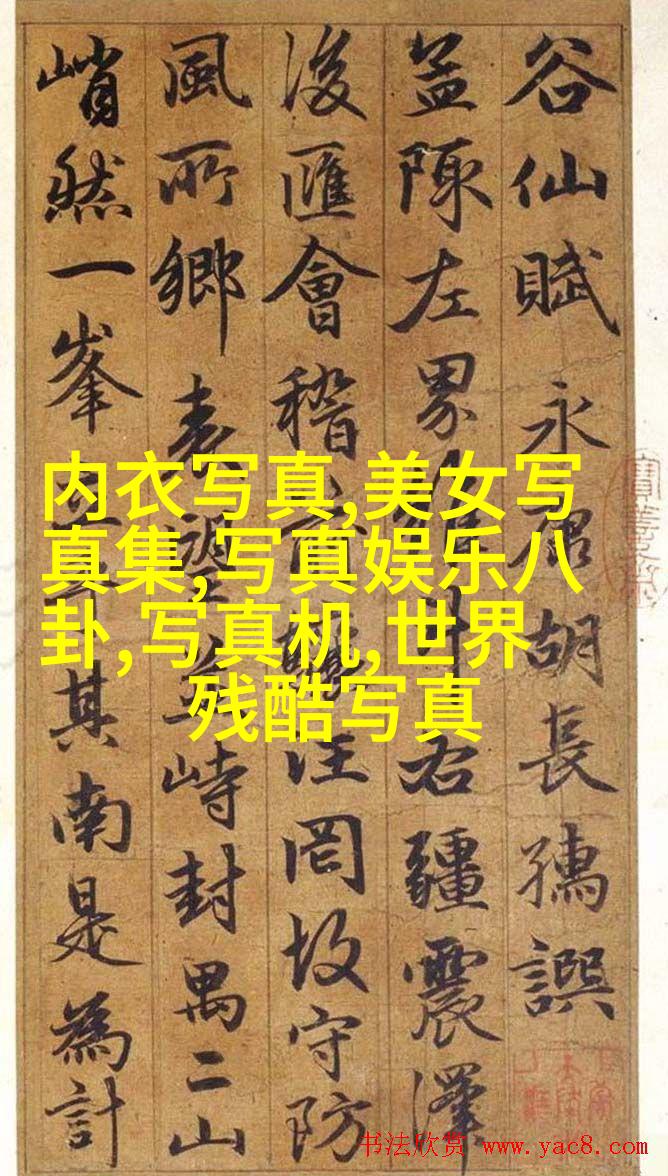 谷仙賦永胡長孺譔
盖陬左界右疆震澤
浚匯會稽汪罔故守防
風所鄉表望峙封禺二山
峭然一峯其南是為計
内衣写真,美女写
真集,写真娱乐八
卦,写真机,世界
残酷写真
书法欣赏 www.yac8.com